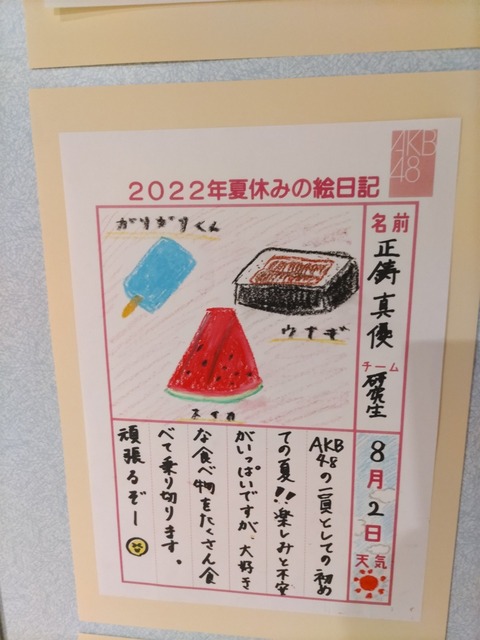 AKB
48
2022年夏休みの絵日記
名前
正鋳真優
チーム
研究生
8月2日
天気
がりがりくん
うなぎ
すいか
AKB48の一員としての初め
ての夏!!楽しみと不安
がいっぱいですが、大好き
な食べ物をたくさん食
べて乗り切ります。
頑張るぞー